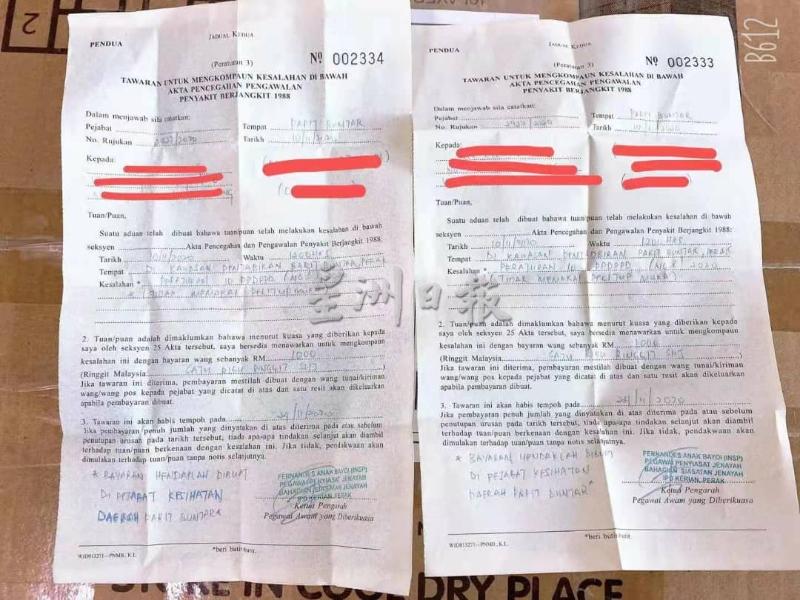 2
B612
PENDUA
JADUAL KEDUA
(Peraturan 3)
No 002334
TAWARAN UNTUK MENGKOMPAUN KESALAHAN DI BAWAH
AKTA PENCEGAHAN PENGAWALAN
PENYAKIT BERJANGKIT 1988
Dalam menjawab sila catatkan:
Pejabat
Tempat PARIT BUNTAR
No. Rujukan /2020
Tarikh 10/11/2020
Kepada:
Tuan/Puan,
Suatu aduan telah dibuat bahawa tuan/puan telah melakukan kesalahan di bawah
seksyen Akta Pencegahan dan Pengawalan Penyakit Berjangkit 1988:
Tarikh 10/11/2020 Waktu 1200HRS
Tempat DI KAWASAN PENTADBIRAN PARIT BUNTAR, PERAK
Kesalahan * PERATURAN 10 PPDPPD
(TIDAK MEMAKAI PELITUP
2. Tuan/puan adalah dimaklumkan bahawa menurut kuasa yang diberikan kepada
saya oleh seksyen 25 Akta tersebut, saya bersedia menawarkan untuk mengkompaun
kesalahan ini dengan bayaran wang sebanyak RM 1000
(Ringgit Malaysia SATU RIBU RINGGIT SHJ )
Jika tawaran ini diterima, pembayaran mestilah dibuat dengan wang tunai/kiriman
wang/wang pos kepada pejabat yang dicatat di atas dan satu resit akan dikeluarkan
apabila pembayaran dibuat.
3. Tawaran ini akan habis tempoh pada 24/11/2020
Jika pembayaran penuh jumlah yang dinyatakan di atas diterima pada atau sebelum
penutupan urusan pada tarikh tersebut, tiada apa-apa tindakan selanjutnya akan diambil
terhadap tuan/puan berkenaan dengan kesalahan ini. Jika tidak, pendakwaan akan
dimulakan terhadap tuan/puan tanpa notis selanjutnya.
* BAYARAN HENDAKLAH DIBUAT
DI PEJABAT KESIHATAN
DAERAH PARIT BUNTAR*
FERNANDES ANAK BAYOI (INSP)
PEGAWAI PENYIASAT JENAYAH
BAHAGIAN SIASATAN JENAYAH
IPD KERIAN, PERAK
Ketua Pengarah
Pegawai Awam yang Diberikuasa
*beri butir-butir.
WJD013271—PNMB, K.L.
PENDUA
JADUAL KEDUA
(Peraturan 3)
No 002333
TAWARAN UNTUK MENGKOMPAUN KESALAHAN DI BAWAH
AKTA PENCEGAHAN PENGAWALAN
PENYAKIT BERJANGKIT 1988
Dalam menjawab sila catatkan:
Pejabat
Tempat PARIT BUNTAR
No. Rujukan /2020
Tarikh 10/11/2020
Kepada:
Tuan/Puan,
Suatu aduan telah dibuat bahawa tuan/puan telah melakukan kesalahan di bawah
seksyen Akta Pencegahan dan Pengawalan Penyakit Berjangkit 1988:
Tarikh 10/11/2020 Waktu 1200HRS
Tempat DI KAWASAN PENTADBIRAN PARIT BUNTAR, PERAK
Kesalahan * PERATURAN 10 PPDPPD
(TIDAK MEMAKAI PELITUP MUKA)
2. Tuan/puan adalah dimaklumkan bahawa menurut kuasa yang diberikan kepada
saya oleh seksyen 25 Akta tersebut, saya bersedia menawarkan untuk mengkompaun
kesalahan ini dengan bayaran wang sebanyak RM 1000
(Ringgit Malaysia SATU RIBU RINGGIT SHJ )
Jika tawaran ini diterima, pembayaran mestilah dibuat dengan wang tunai/kiriman
wang/wang pos kepada pejabat yang dicatat di atas dan satu resit akan dikeluarkan
apabila pembayaran dibuat.
3. Tawaran ini akan habis tempoh pada 24/11/2020
Jika pembayaran penuh jumlah yang dinyatakan di atas diterima pada atau sebelum
penutupan urusan pada tarikh tersebut, tiada apa-apa tindakan selanjutnya akan diambil
terhadap tuan/puan berkenaan dengan kesalahan ini. Jika tidak, pendakwaan akan
dimulakan terhadap tuan/puan tanpa notis selanjutnya.
* BAYARAN HENDAKLAH DIBUAT
DI PEJABAT KESIHATAN
DAERAH PARIT BUNTAR*
FERNANDES ANAK BAYOI (INSP)
PEGAWAI PENYIASAT JENAYAH
BAHAGIAN SIASATAN JENAYAH
IPD KERIAN, PERAK
Ketua Pengarah
Pegawai Awam yang Diberikuasa
*beri butir-butir.
WJD013271—PNMB, K.L.
星洲日報
STORE IN COOL DRY PLACE